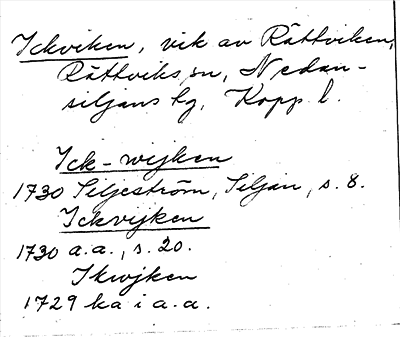 Ickviken, vik av Rättviken,
Rättviks sn, Nedan-
siljans hg, Kopp. l.
Ick-wijken
1730 Seljeström, Siljan, s. 8.
Ickvijken
1730 a.a., s. 20.
Ikwjken
1729 ka i a.a.